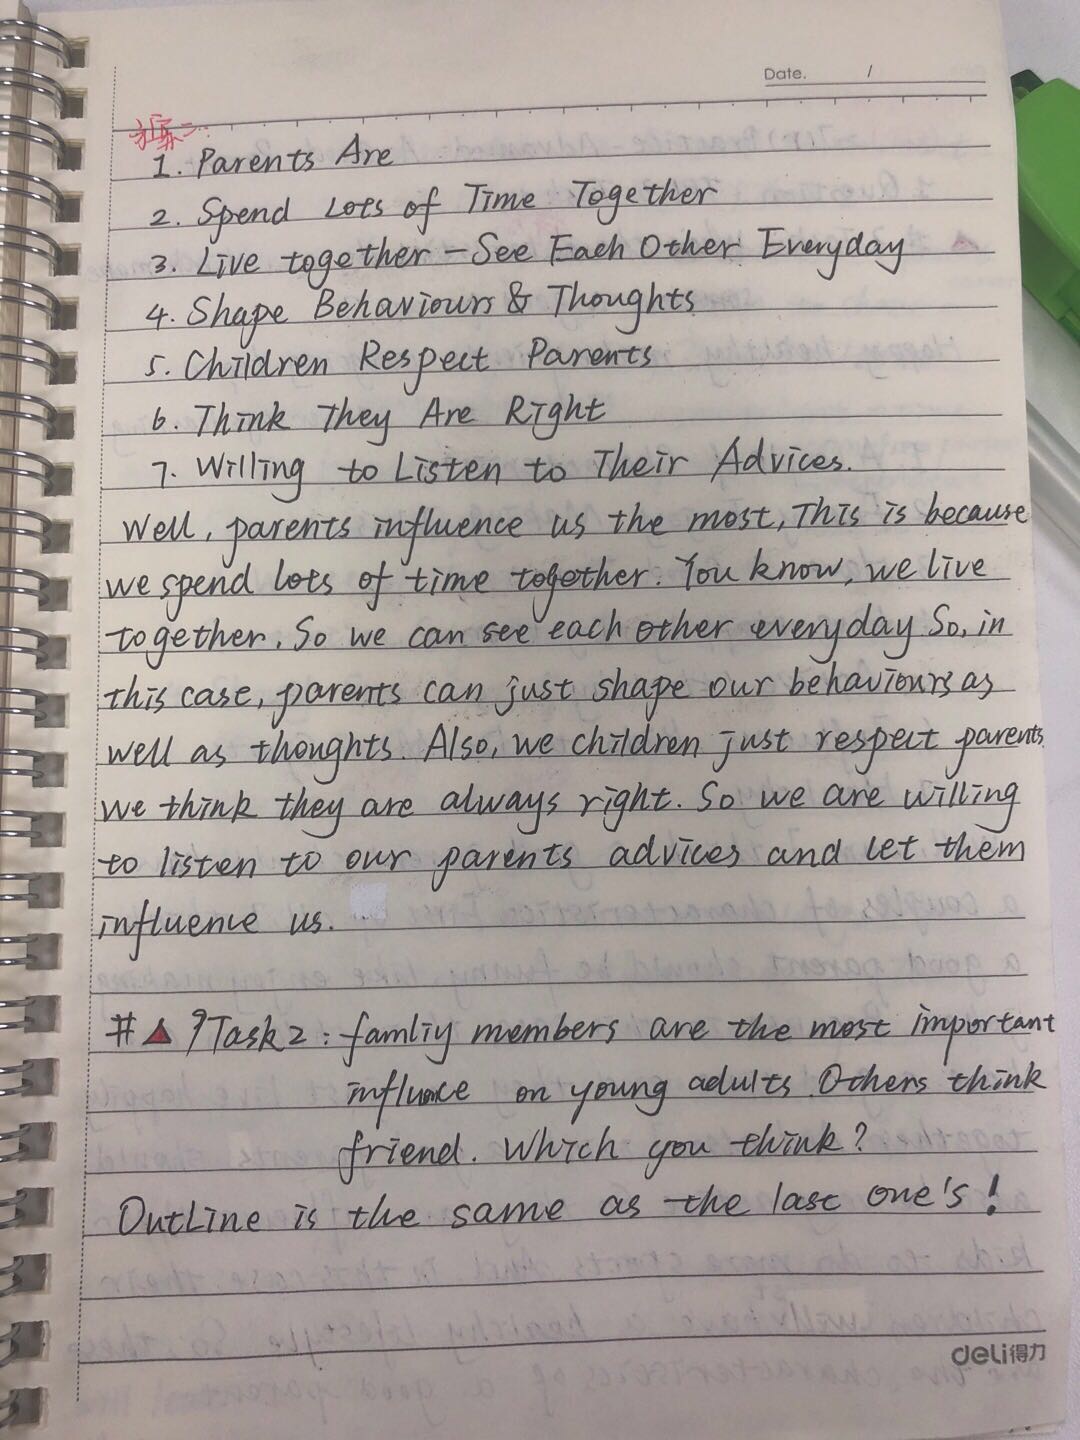 Date. /
1. Parents Are
2. Spend Lots of Time Together
3. Live together - See Each Other Everyday
4. Shape Behaviours & Thoughts
5. Children Respect Parents
6. Think They Are Right
7. Willing to Listen to Their Advices.
Well, parents influence us the most, This is because
we spend lots of time together. You know, we live
together. So we can see each other everyday So, in
this case, parents can just shape our behaviours as
well as thoughts. Also, we children just respect parents
we think they are always right. So we are willing
to listen to our parents advices and let them
influence us.
# ▲ ? Task 2 : famliy members are the most important
influence on young adults. Others think
friend. Which you think?
OutLine is the same as the last one's!
deli得力